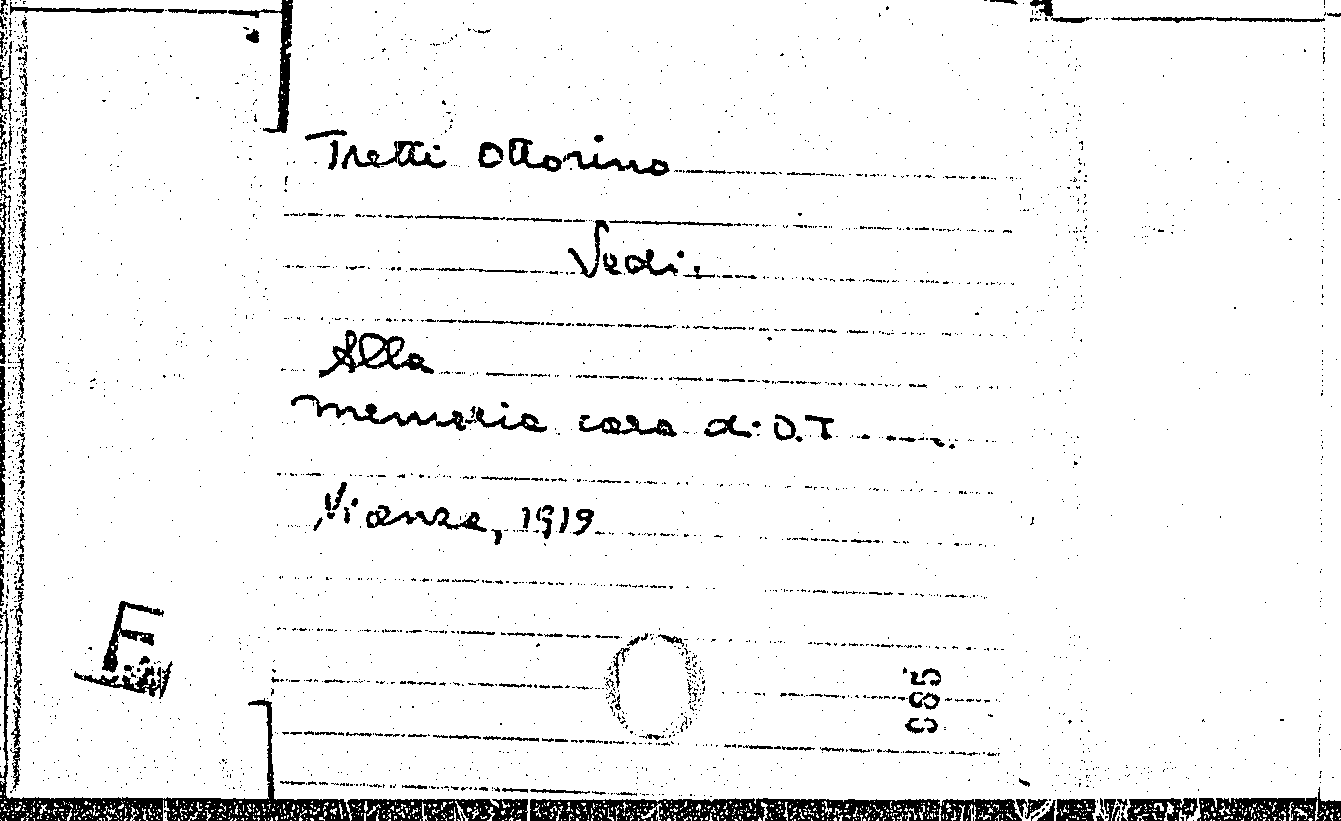 Tretti Ottorino
Vedi:
Alla
memoria cara di O.T.....
Vicenza, 1919
E
585